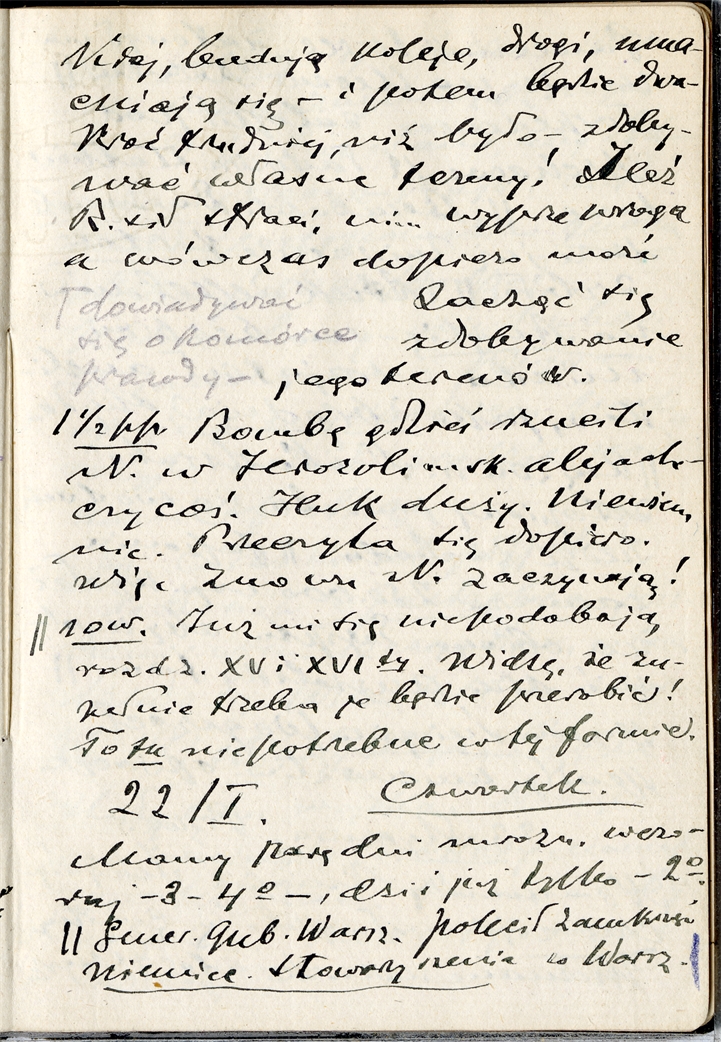 dziej, budują koleje, drogi, uma-
cniają się – i potem będzie dwa-
kroć trudniej, niż było – zdoby-
wać własne tereny! Ileż
R. sił straci, nim wyprze wroga
a wówczas dopiero może
zacząć się
zdobywanie
jego terenów.
dowiadywać
się o komórce
prawdy –
1 1/2 pp. Bombę gdzieś rzucili
N. w Jerozolimsk. alejach
czy coś. Huk duży. Niewiem
nic. Przeczyta się dopiero.
Więc znowu N. zaczynają!
pow. Już mi się niepodobają,
rozdz. XV i XVI ty. Widzę, że zu-
pełnie trzeba je będzie przerobić!
To tu niepotrzebne w tej formie.
22/I. Czwartek.
Mamy parę dni mrozu. wczo-
raj -3-4º –, dziś już tylko – 2º.
II Gener. Gub. Warsz. polecił zamknąć
niemiec. stowarzyszenia w Warsz.